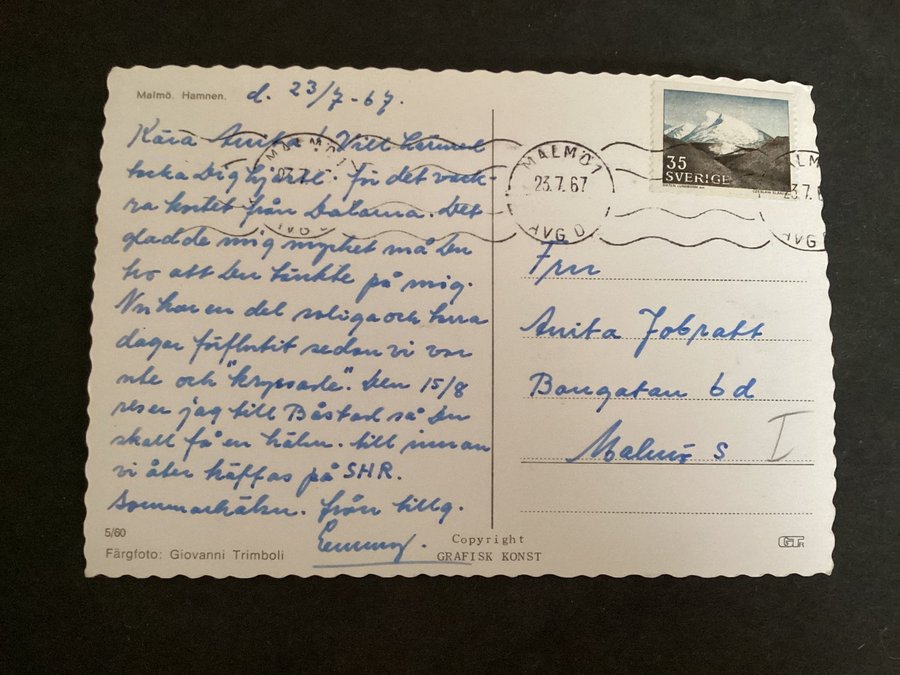 Malmö. Hamnen.
d. 23/7-67.
Kära Anita! Vill härmed
tacka Dig hjärtl. för det vack-
ra kortet från Dalarna. Det
gladde mig mycket må Du
tro att Du tänkte på mig.
Nu har en del soliga och
dagar förflutit sedan vi var
ute och "kryssade". Den 15/8
reser jag till Båstad så Du
skall få en hälsn. till innan
vi åter träffas på SHR.
Sommarhälsn. från tillg.
Emmy.
5/60
Färgfoto: Giovanni Trimboli
Copyright
GRAFISK KONST
MALMÖ 1
23.7.67
AVG D
MALMÖ 1
23.7.67
AVG D
35
SVERIGE
Fru
Anita
Bangatan 6 d
Malmö S
I